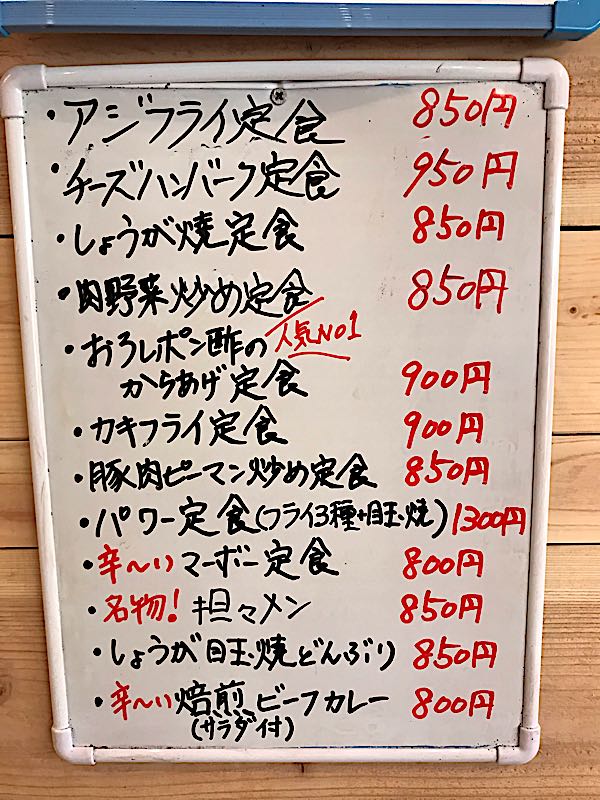 ・アジフライ定食 850円
・チーズハンバーク定食 950円
・しょうが焼定食 850円
・肉野菜炒め定食 850円
・おろしポン酢の 人気NO1
からあげ定食 900円
・カキフライ定食 900円
・豚肉ピーマン炒め定食 850円
・パワー定食(フライ3種+目玉焼) 1300円
・辛〜いマーボー定食 800円
・名物!担々メン 850円
・しょうが目玉焼どんぶり 850円
・辛〜い焙煎ビーフカレー 800円
(サラダ付)